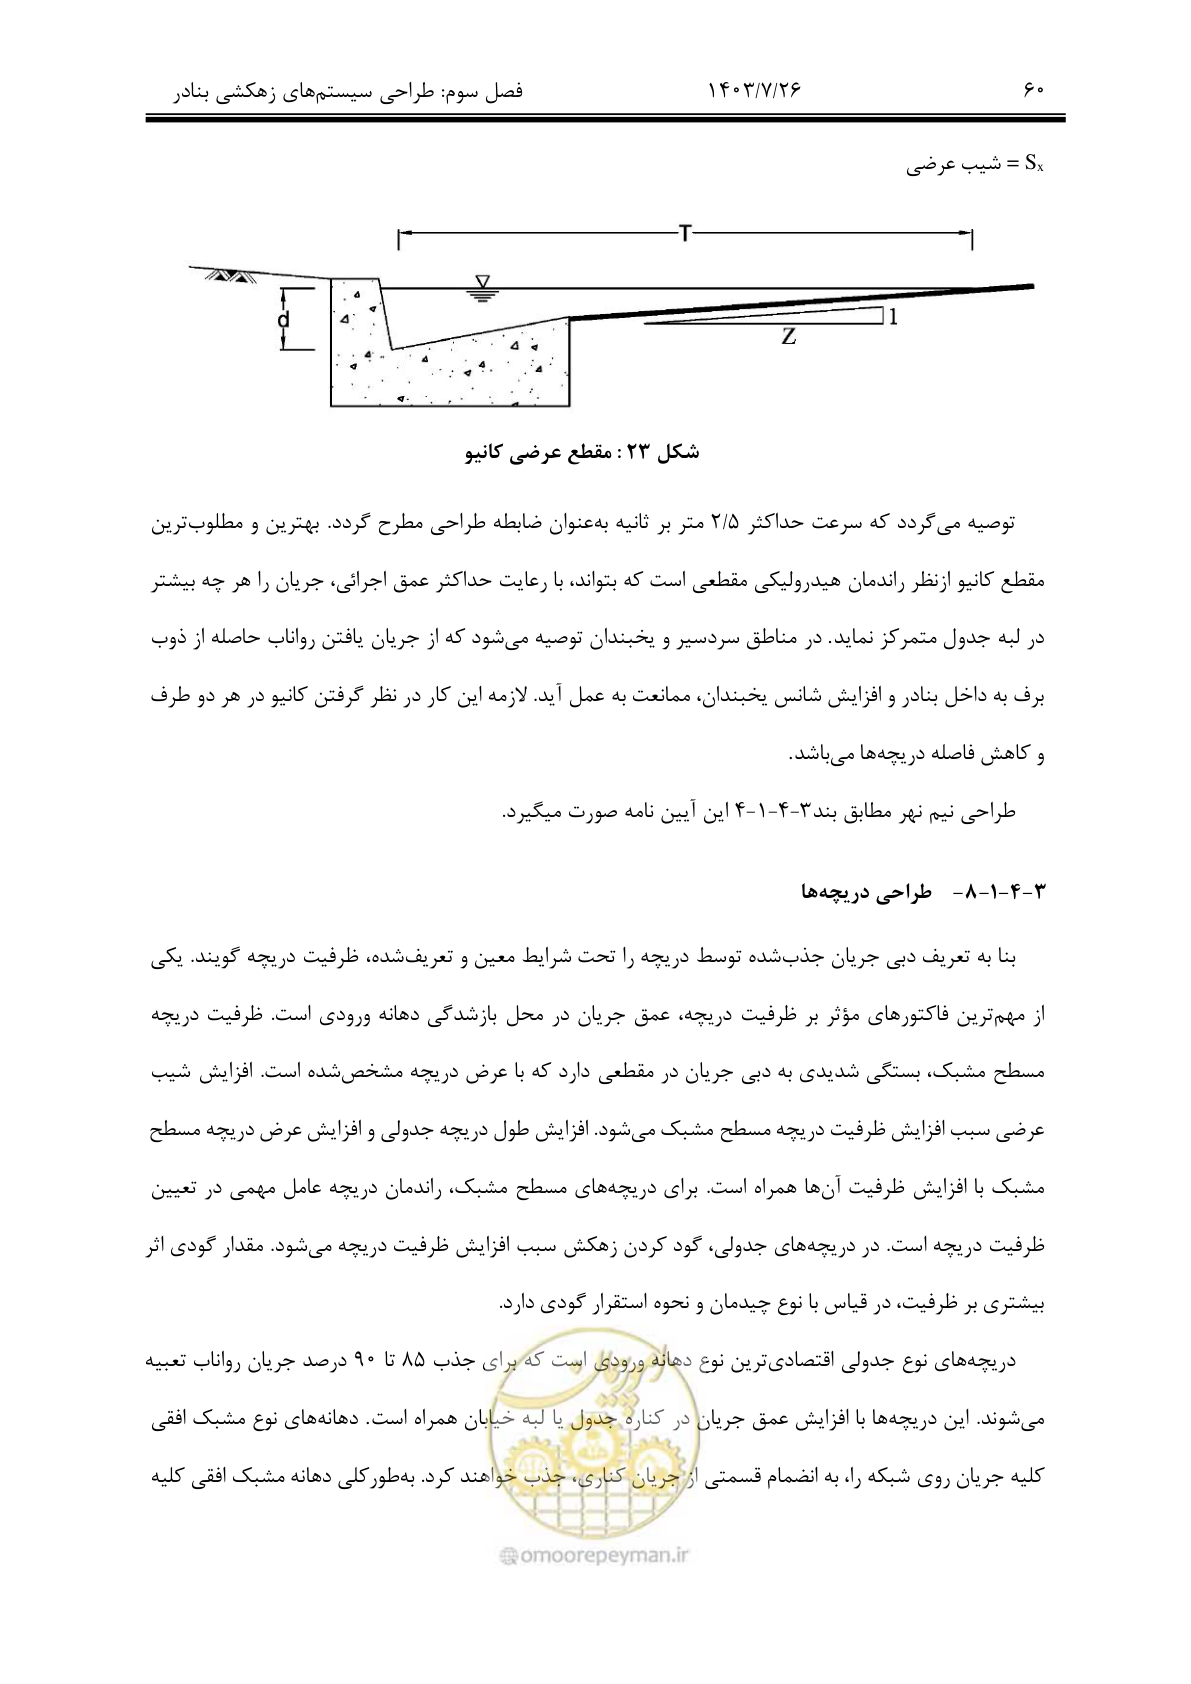 ۶۰ ۱۴۰۳/۷/۲۶ فصل سوم: طراحی سیستم‌های زهکشی بنادر
Sx = شیب عرضی
T
d
1
Z
شکل ۲۳ : مقطع عرضی کانیو
توصیه می‌گردد که سرعت حداکثر ۲/۵ متر بر ثانیه به‌عنوان ضابطه طراحی مطرح گردد. بهترین و مطلوب‌ترین
مقطع کانیو ازنظر راندمان هیدرولیکی مقطعی است که بتواند، با رعایت حداکثر عمق اجرائی، جریان را هر چه بیشتر
در لبه جدول متمرکز نماید. در مناطق سردسیر و یخبندان توصیه می‌شود که از جریان یافتن رواناب حاصله از ذوب
برف به داخل بنادر و افزایش شانس یخبندان، ممانعت به عمل آید. لازمه این کار در نظر گرفتن کانیو در هر دو طرف
و کاهش فاصله دریچه‌ها می‌باشد.
طراحی نیم نهر مطابق بند۳-۴-۱-۴ این آیین نامه صورت میگیرد.
۳-۴-۱-۸- طراحی دریچه‌ها
بنا به تعریف دبی جریان جذب‌شده توسط دریچه را تحت شرایط معین و تعریف‌شده، ظرفیت دریچه گویند. یکی
از مهم‌ترین فاکتورهای مؤثر بر ظرفیت دریچه، عمق جریان در محل بازشدگی دهانه ورودی است. ظرفیت دریچه
مسطح مشبک، بستگی شدیدی به دبی جریان در مقطعی دارد که با عرض دریچه مشخص‌شده است. افزایش شیب
عرضی سبب افزایش ظرفیت دریچه مسطح مشبک می‌شود. افزایش طول دریچه جدولی و افزایش عرض دریچه مسطح
مشبک با افزایش ظرفیت آن‌ها همراه است. برای دریچه‌های مسطح مشبک، راندمان دریچه عامل مهمی در تعیین
ظرفیت دریچه است. در دریچه‌های جدولی، گود کردن زهکش سبب افزایش ظرفیت دریچه می‌شود. مقدار گودی اثر
بیشتری بر ظرفیت، در قیاس با نوع چیدمان و نحوه استقرار گودی دارد.
دریچه‌های نوع جدولی اقتصادی‌ترین نوع دهانه ورودی است که برای جذب ۸۵ تا ۹۰ درصد جریان رواناب تعبیه
می‌شوند. این دریچه‌ها با افزایش عمق جریان در کناره جدول یا لبه خیابان همراه است. دهانه‌های نوع مشبک افقی
کلیه جریان روی شبکه را، به انضمام قسمتی از جریان کناری، جذب خواهند کرد. به‌طورکلی دهانه مشبک افقی کلیه
امورپیمان
@omoorepeyman.ir